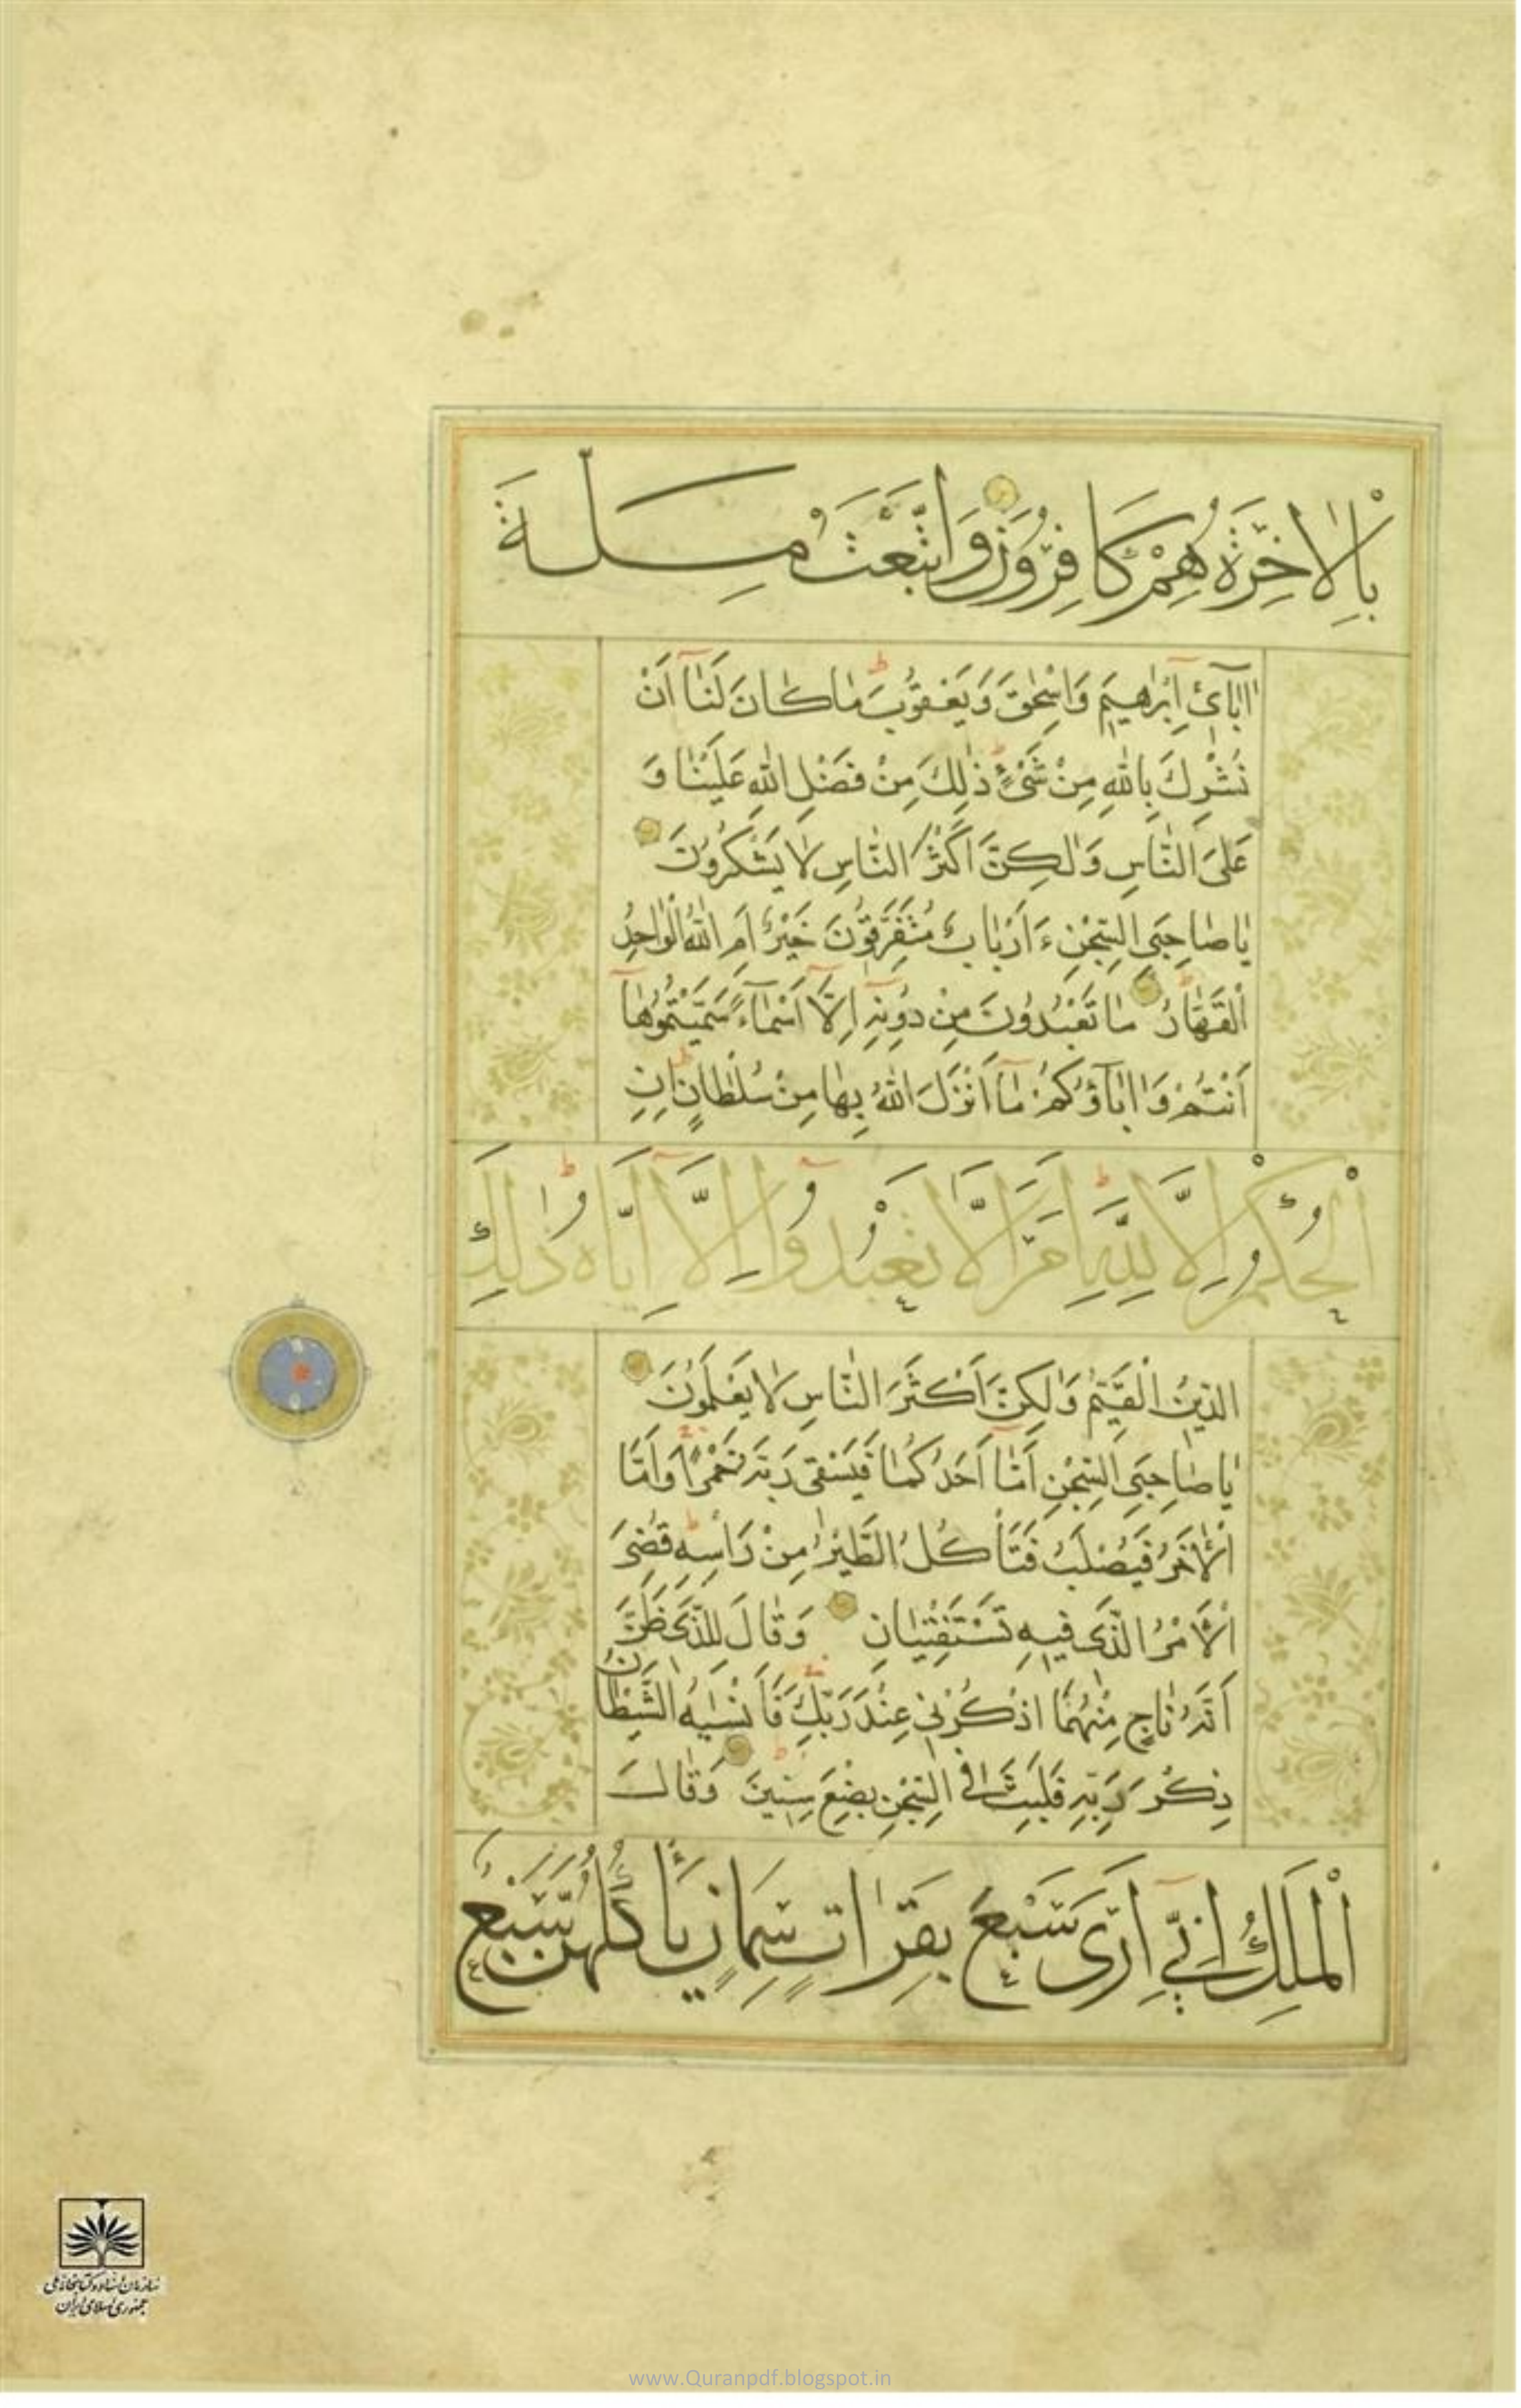 بِالْاٰخِرَةِ هُمْ كَافِرُونَ وَاتَّبَعْتُ مِلَّةَ
اٰبَآئِ اِبْرٰهِيمَ وَاِسْحٰقَ وَيَعْقُوبَ مَا كَانَ لَنَآ اَنْ
نُشْرِكَ بِاللّٰهِ مِنْ شَيْءٍ ذٰلِكَ مِنْ فَضْلِ اللّٰهِ عَلَيْنَا وَ
عَلَى النَّاسِ وَلٰكِنَّ اَكْثَرَ النَّاسِ لَا يَشْكُرُونَ
يَا صَاحِبَيِ السِّجْنِ ءَاَرْبَابٌ مُتَفَرِّقُونَ خَيْرٌ اَمِ اللّٰهُ الْوَاحِدُ
الْقَهَّارُ مَا تَعْبُدُونَ مِنْ دُونِهِ اِلَّآ اَسْمَآءً سَمَّيْتُمُوهَآ
اَنْتُمْ وَاٰبَآؤُكُمْ مَآ اَنْزَلَ اللّٰهُ بِهَا مِنْ سُلْطَانٍ اِنِ
الْحُكْمُ اِلَّا لِلّٰهِ اَمَرَ اَلَّا تَعْبُدُوٓا اِلَّآ اِيَّاهُ ذٰلِكَ
الدِّينُ الْقَيِّمُ وَلٰكِنَّ اَكْثَرَ النَّاسِ لَا يَعْلَمُونَ
يَا صَاحِبَيِ السِّجْنِ اَمَّآ اَحَدُكُمَا فَيَسْقِى رَبَّهُ خَمْرًا وَاَمَّا
الْاٰخَرُ فَيُصْلَبُ فَتَأْكُلُ الطَّيْرُ مِنْ رَاْسِهِ قُضِىَ
الْاَمْرُ الَّذِى فِيهِ تَسْتَفْتِيَانِ وَقَالَ لِلَّذِى ظَنَّ
اَنَّهُ نَاجٍ مِنْهُمَا اذْكُرْنِى عِنْدَ رَبِّكَ فَاَنْسٰيهُ الشَّيْطَانُ
ذِكْرَ رَبِّهِ فَلَبِثَ فِى السِّجْنِ بِضْعَ سِنِينَ وَقَالَ
الْمَلِكُ اِنِّىٓ اَرٰى سَبْعَ بَقَرَاتٍ سِمَانٍ يَأْكُلُهُنَّ سَبْعٌ
سازمان اسناد و کتابخانه ملی
جمهوری اسلامی ایران
www.Quranpdf.blogspot.in